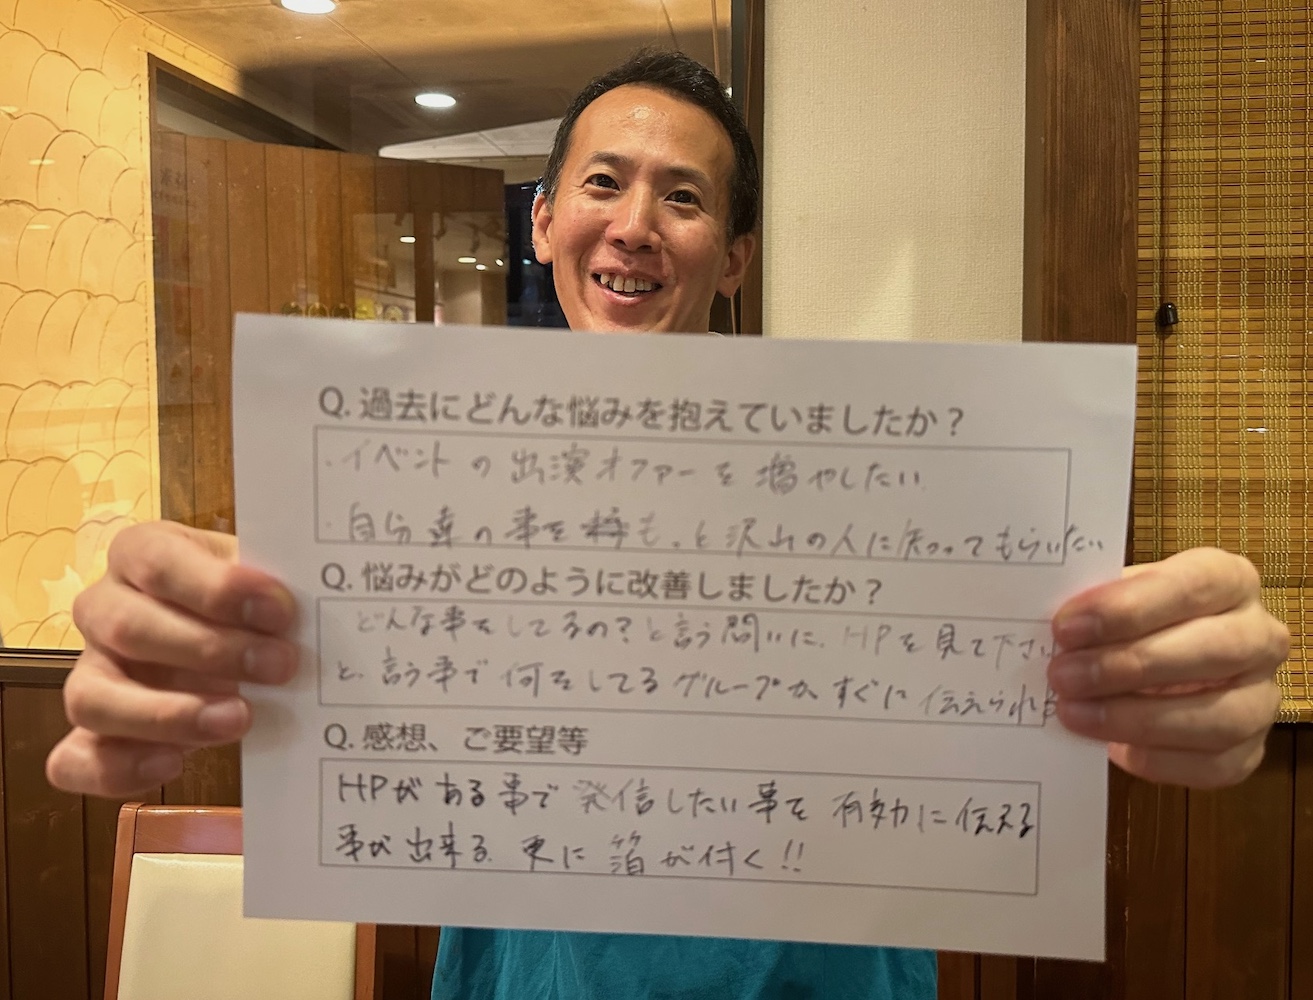 Q. 過去にどんな悩みを抱えていましたか？
・イベントの出演オファーを増やしたい
・自分達の事をもっと沢山の人に知ってもらいたい
Q. 悩みがどのように改善しましたか？
どんな事をしてるの？と言う問いに、HPを見て下さい
と、言う事で何をしてるグループかすぐに伝えられ
Q. 感想、ご要望等
HPがある事で発信したい事を有効に伝える
事が出来る。更に箔が付く!!